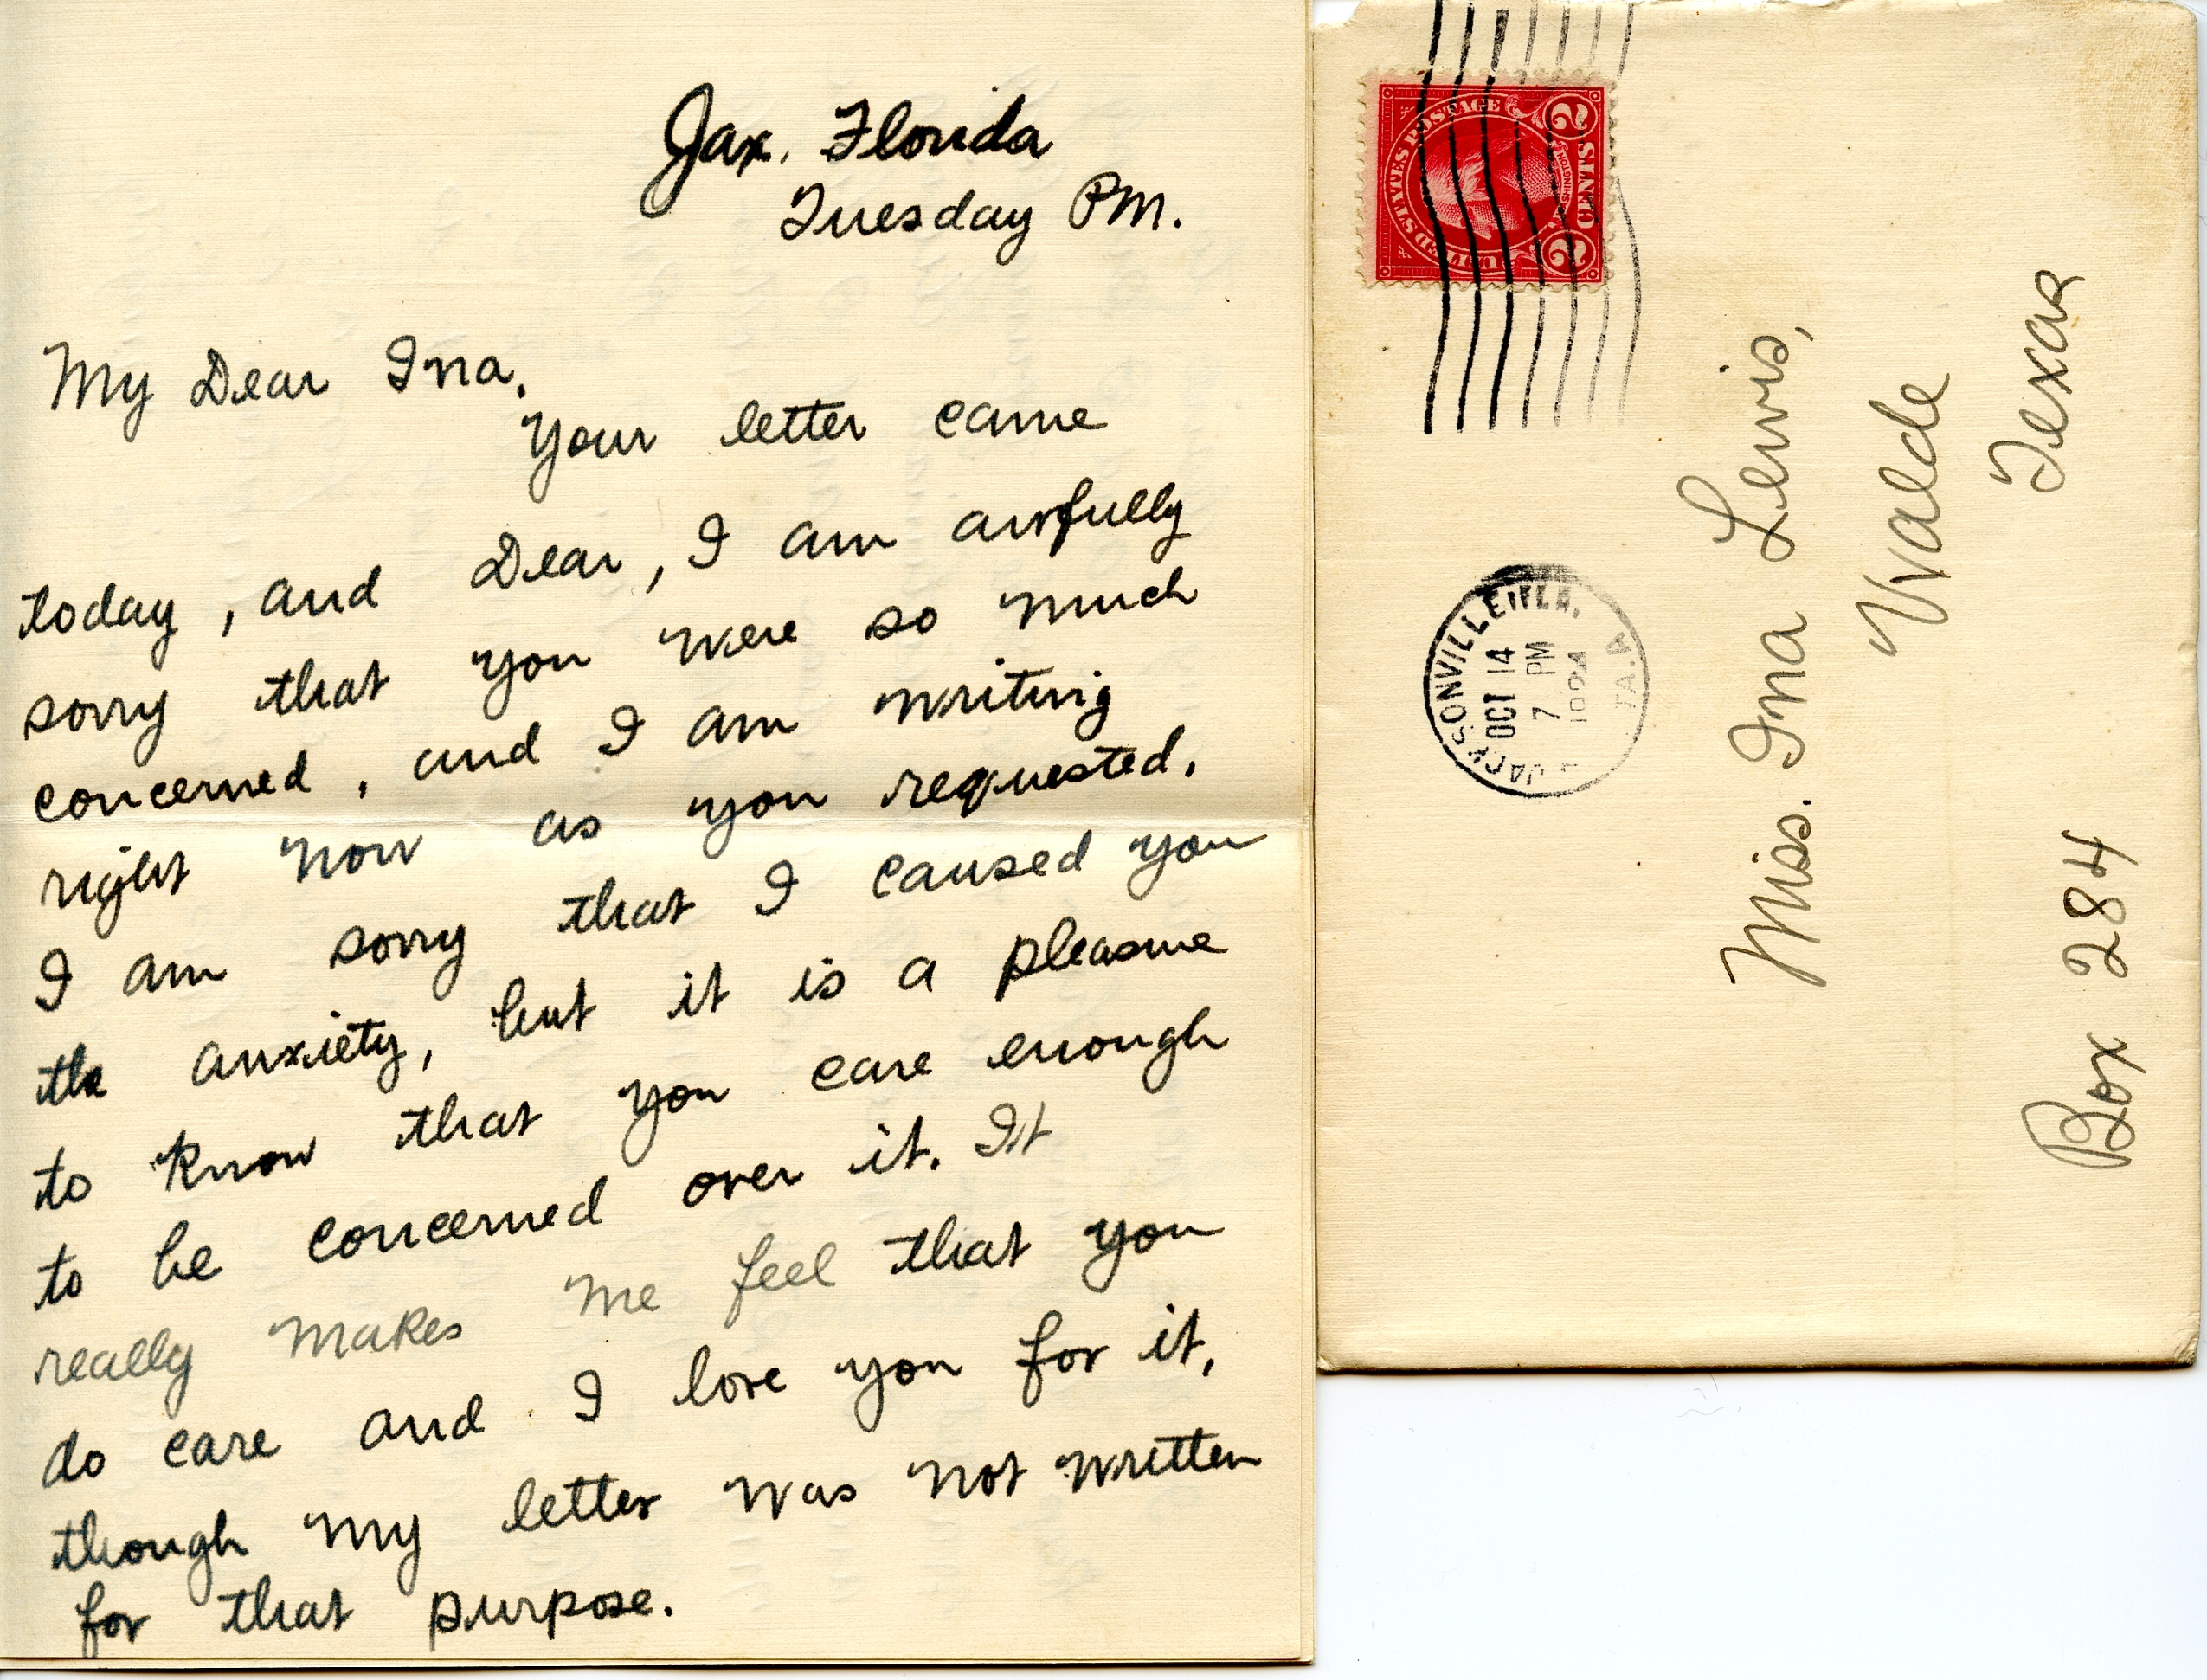 Jax. Florida
Tuesday PM.
My Dear Ina,
Your letter came
today, and Dear, I am awfully
sorry that you were so much
concerned, and I am writing
right now as you requested.
I am sorry that I caused you
the anxiety, but it is a pleasure
to know that you care enough
to be concerned over it. It
really makes me feel that you
do care and I love you for it,
though my letter was not written
for that purpose.
UNITED STATES POSTAGE
WASHINGTON
2 CENTS 2
JACKSONVILLE, FLA.
OCT 14
7 PM
1924
Miss. Ina Lewis,
Uvalde
Texas
Box 284